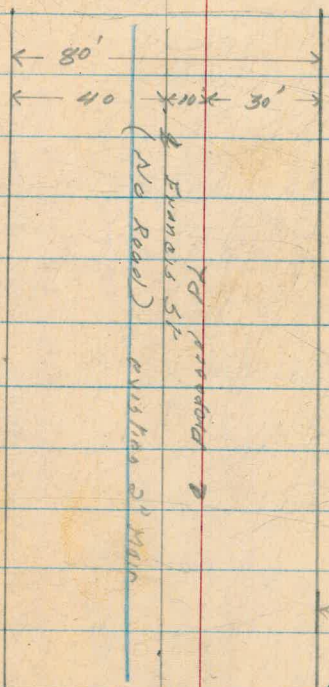 80'
40 10' 30'
℄ Francis St
(No Road) existing 2" Main